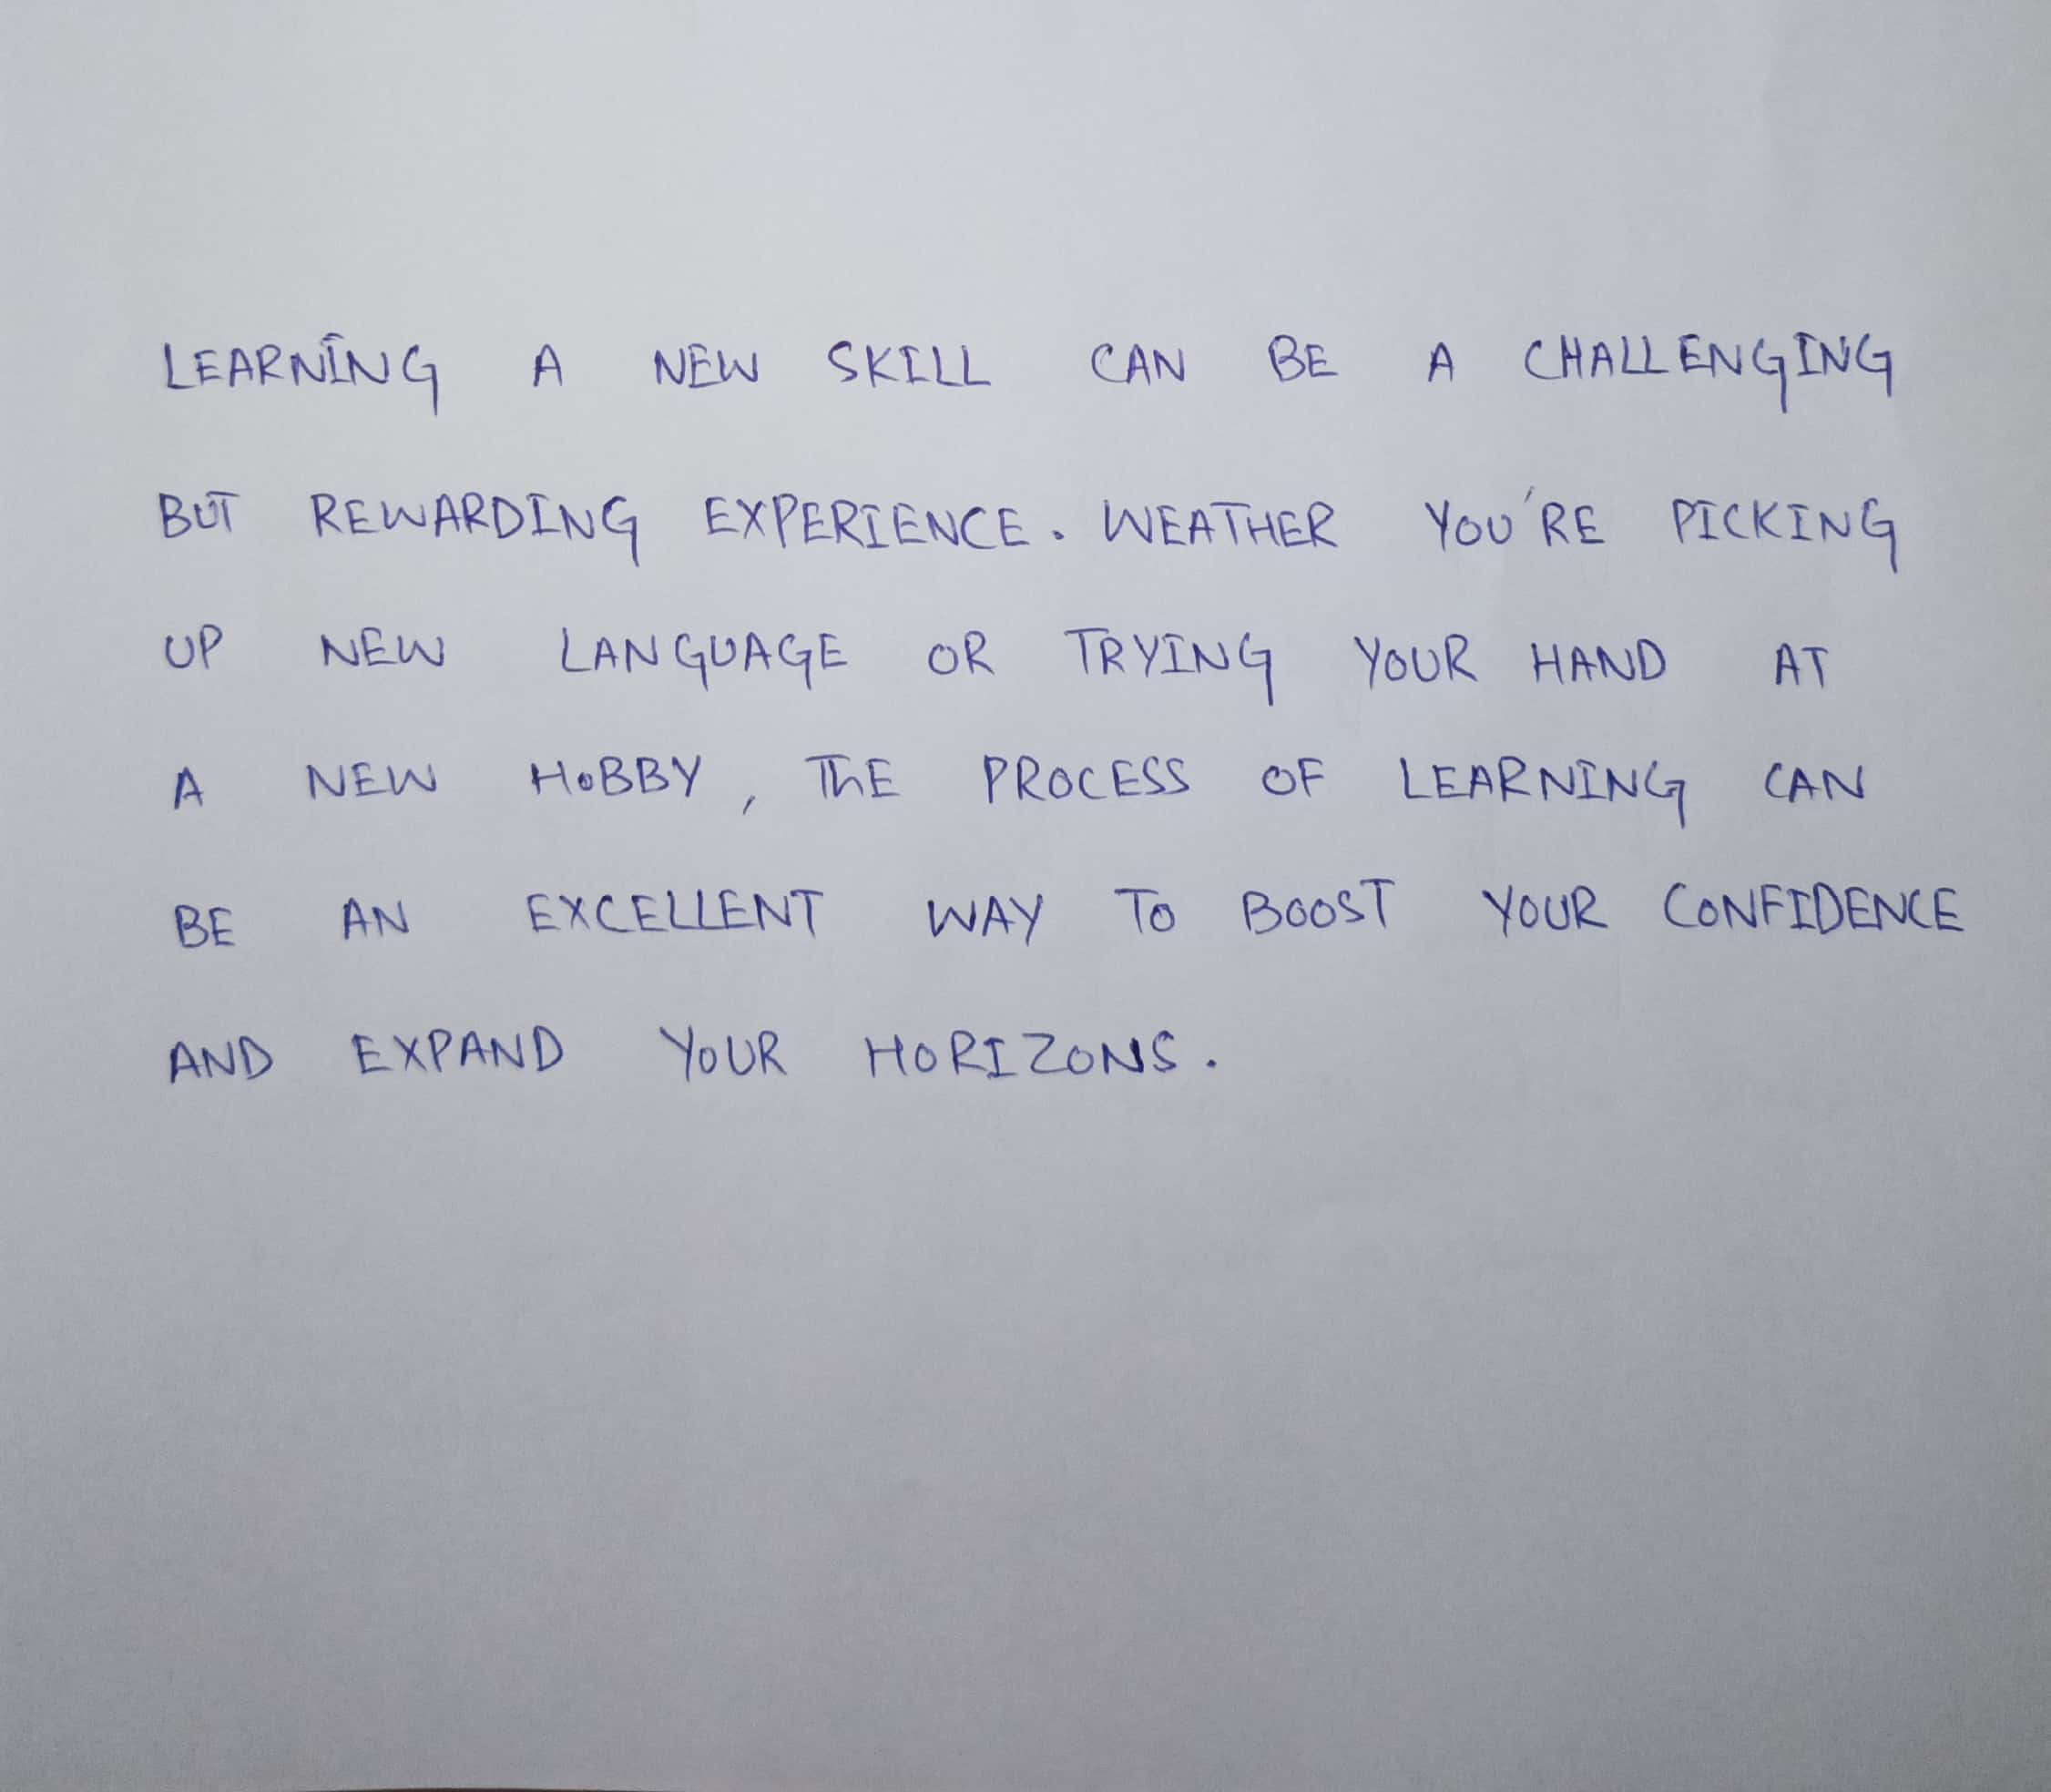 LEARNING A NEW SKILL CAN BE A CHALLENGING
BUT REWARDING EXPERIENCE. WEATHER YOU'RE PICKING
UP NEW LANGUAGE OR TRYING YOUR HAND AT
A NEW HOBBY, ThE PROCESS OF LEARNING CAN
BE AN EXCELLENT WAY TO BOOST YOUR CONFIDENCE
AND EXPAND YOUR HORIZONS.